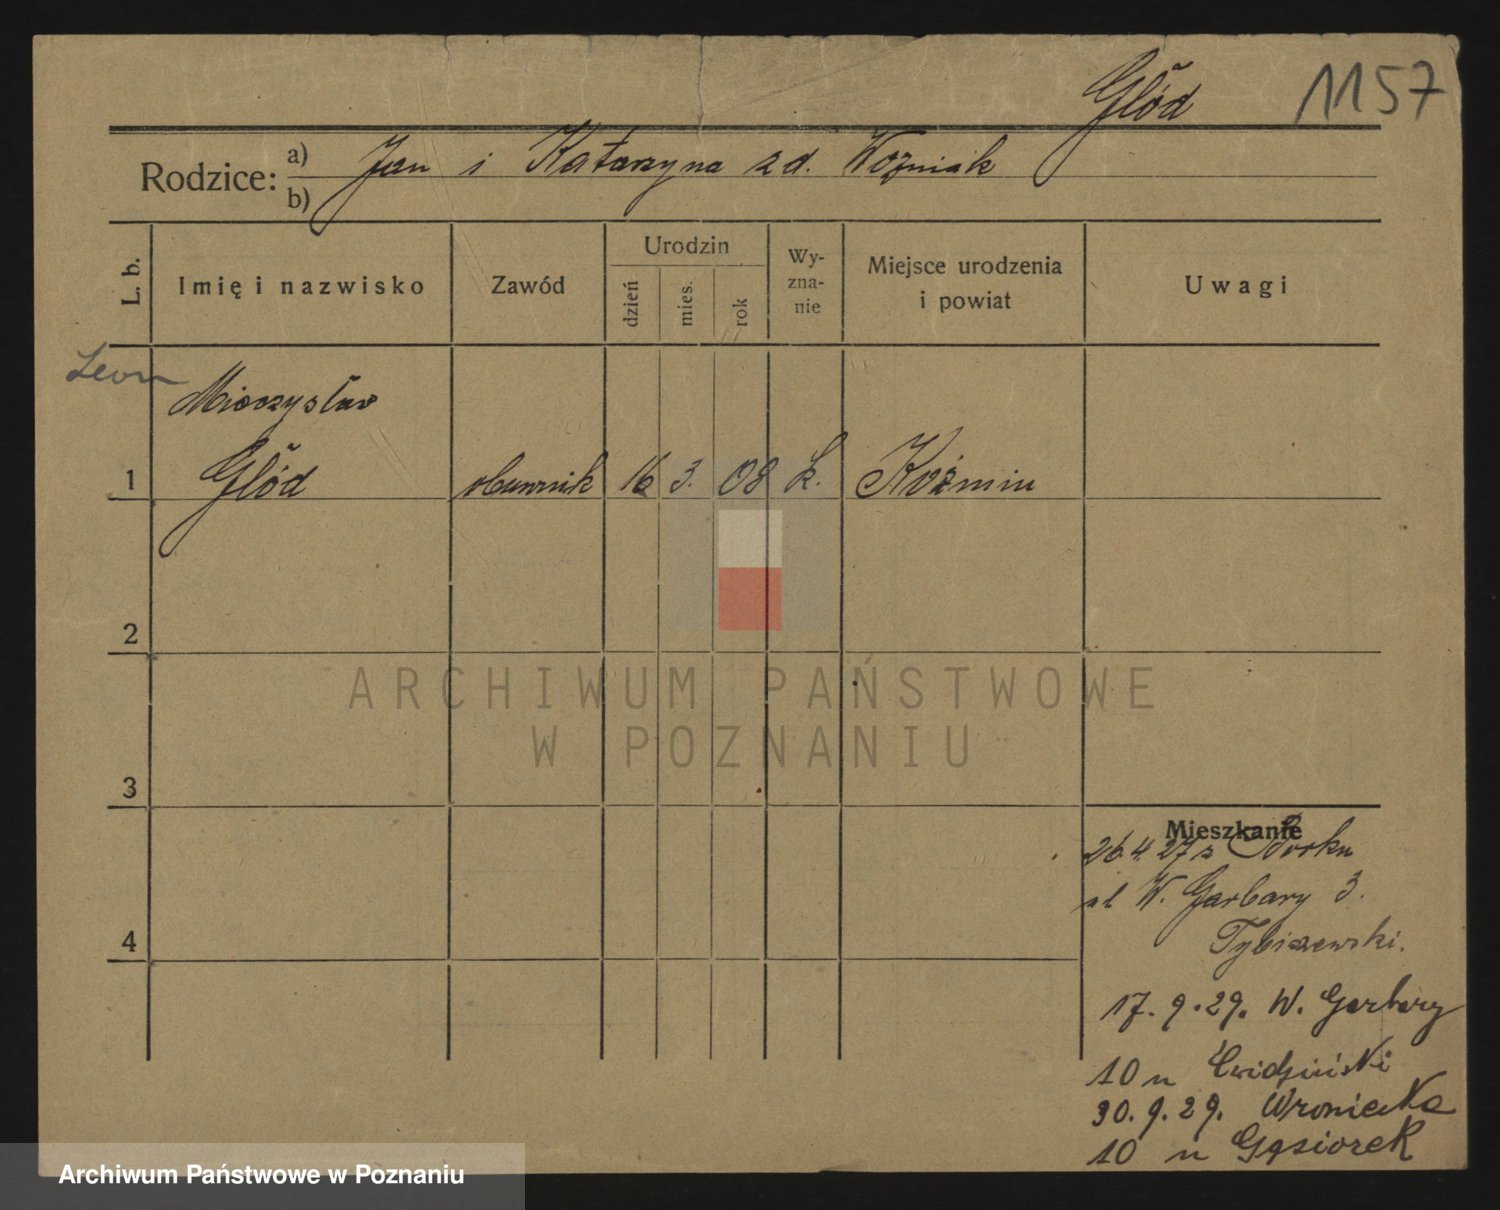 Głód 1157
Rodzice: a) Jan i Katarzyna z d. Woźniak
b)
L. b. Imię i nazwisko Zawód Urodzin dzień mies. rok Wy-zna-nie Miejsce urodzenia i powiat Uwagi
Leon
Mieczysław
1 Głód obuwnik 16 3. 08 k. Koźmin
2
ARCHIWUM PAŃSTWOWE
W POZNANIU
3
Mieszkanie
26.4.27 z Borku
W. Garbary 3.
4
17.9.29. W. Garbary
10 u
30.9.29. Wroniecka
10 u Gąsiorek
Archiwum Państwowe w Poznaniu